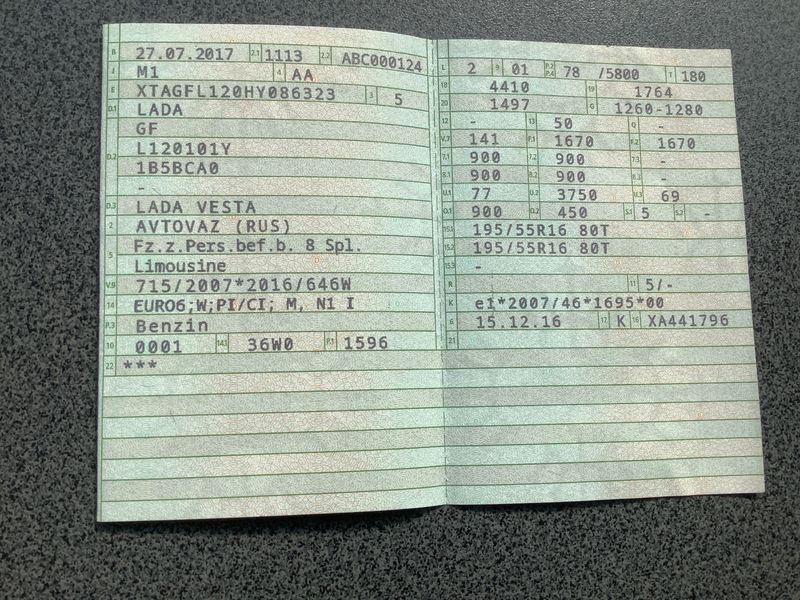 B 27.07.2017 2.1 1113 2.2 ABC000124
J M1 4 AA
E XTAGFL120HY086323 3 5
D.1 LADA
GF
D.2 L120101Y
1B5BCA0
-
D.3 LADA VESTA
2 AVTOVAZ (RUS)
5 Fz.z.Pers.bef.b. 8 Spl.
Limousine
V.9 715/2007*2016/646W
14 EURO6;W;PI/CI; M, N1 I
P.3 Benzin
10 0001 14.1 36W0 P.1 1596
22 ***
L 2 9 01 P.2 P.4 78 /5800 T 180
18 4410 19 1764
20 1497 G 1260-1280
12 - 13 50 Q -
V.7 141 F.1 1670 F.2 1670
7.1 900 7.2 900 7.3 -
8.1 900 8.2 900 8.3 -
U.1 77 U.2 3750 U.3 69
O.1 900 O.2 450 S.1 5 S.2 -
15.1 195/55R16 80T
15.2 195/55R16 80T
15.3 -
R 11 5/-
K e1*2007/46*1695*00
6 15.12.16 17 K 16 XA441796
21